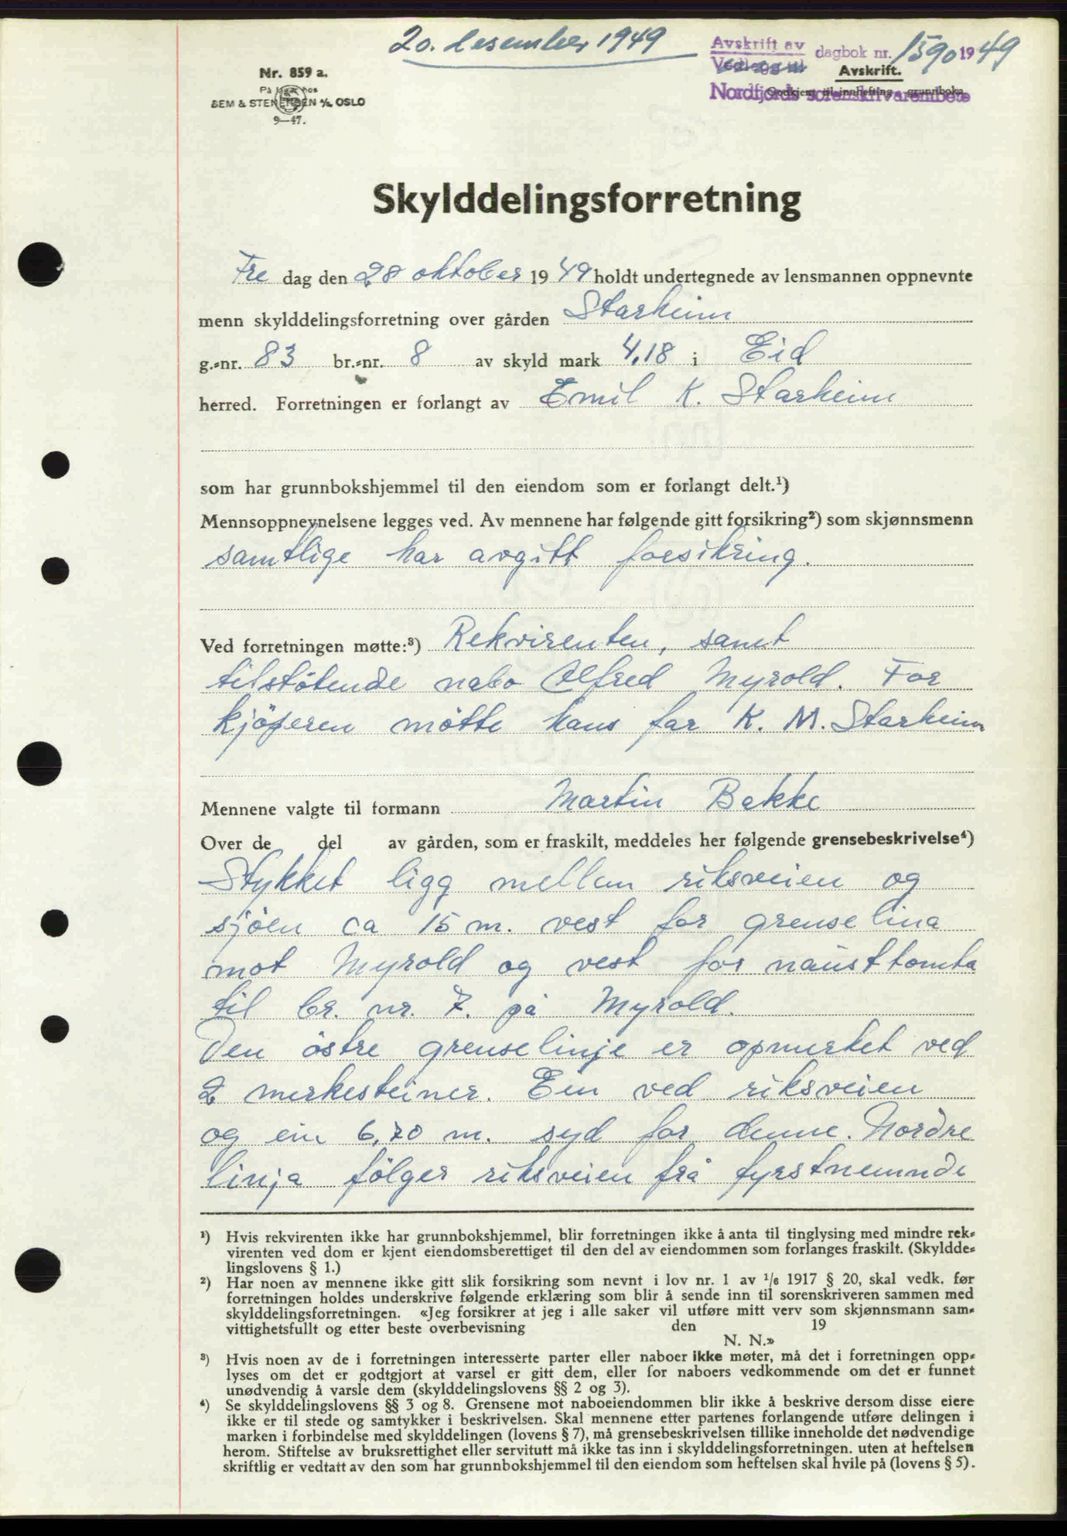 20. desember 1949
Avskrift av dagbok nr. 1590 1949
Vedlegg til
Avskrift.
Nordfjords sorenskriverembete
Nr. 859 a.
På lager hos
SEM & STENERSEN A/S, OSLO
9—47.
Skylddelingsforretning
Fre dag den 28 oktober 1949 holdt undertegnede av lensmannen oppnevnte
menn skylddelingsforretning over gården Starheim
g.-nr. 83 br.-nr. 8 av skyld mark 4,18 i Eid
herred. Forretningen er forlangt av Emil K. Starheim
som har grunnbokshjemmel til den eiendom som er forlangt delt.¹)
Mennsoppnevnelsene legges ved. Av mennene har følgende gitt forsikring²) som skjønnsmenn
samtlige har avgitt forsikring.
Ved forretningen møtte:³) Rekvirenten, samt
tilstøtende nabo Alfred Myrold. For
kjøperen møtte hans far K. M. Starheim
Mennene valgte til formann Martin Bakke
Over de del av gården, som er fraskilt, meddeles her følgende grensebeskrivelse⁴)
Stykket ligg mellem riksveien og
sjøen ca 15 m. vest for grenselina
mot Myrold og vest for nausttomta
til br. nr. 7. på Myrold.
Den östre grenselinje er opmerket ved
2 merkesteiner. Ein ved riksveien
og ein 6,70 m. syd for denne. Nordre
linja fölger riksveien frå fyrstnemnde
¹) Hvis rekvirenten ikke har grunnbokshjemmel, blir forretningen ikke å anta til tinglysing med mindre rek-
virenten ved dom er kjent eiendomsberettiget til den del av eiendommen som forlanges fraskilt. (Skyldde-
lingslovens § 1.)
²) Har noen av mennene ikke gitt slik forsikring som nevnt i lov nr. 1 av ¹/₆ 1917 § 20, skal vedk. før
forretningen holdes underskrive følgende erklæring som blir å sende inn til sorenskriveren sammen med
skylddelingsforretningen. «Jeg forsikrer at jeg i alle saker vil utføre mitt verv som skjønnsmann sam-
vittighetsfullt og etter beste overbevisning den 19
N. N.»
³) Hvis noen av de i forretningen interesserte parter eller naboer ikke møter, må det i forretningen opp-
lyses om det er godtgjort at varsel er gitt dem, eller for naboers vedkommende om det er funnet
unødvendig å varsle dem (skylddelingslovens §§ 2 og 3).
⁴) Se skylddelingslovens §§ 3 og 8. Grensene mot naboeiendommen blir ikke å beskrive dersom disse eiere
ikke er til stede og samtykker i beskrivelsen. Skal mennene etter partenes forlangende utføre delingen i
marken i forbindelse med skylddelingen (lovens § 7), må grensebeskrivelsen tillike inneholde det nødvendige
herom. Stiftelse av bruksrettighet eller servitutt må ikke tas inn i skylddelingsforretningen. uten at heftelsen
skriftlig er vedtatt av den som har grunnbokshjemmel til den eiendom som heftelsen skal hvile på (lovens § 5).